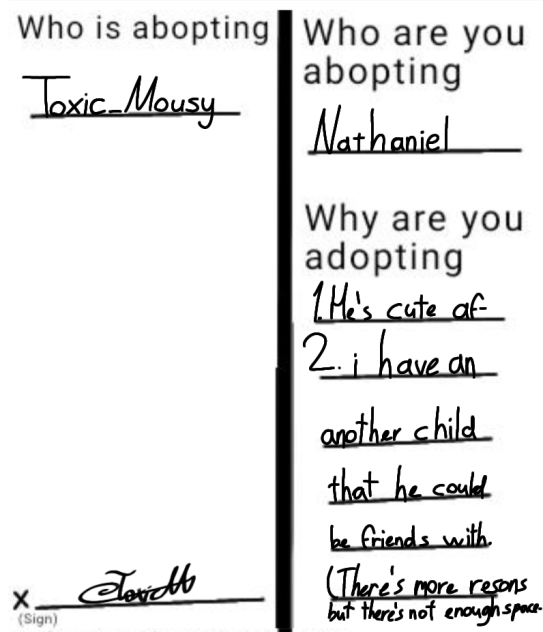 Who is abopting
Toxic_Mousy
X
(Sign)
Who are you
abopting
Nathaniel
Why are you
adopting
1.He's cute af-
2. i have an
another child
that he could
be friends with.
(There's more resons
but there's not enough space.